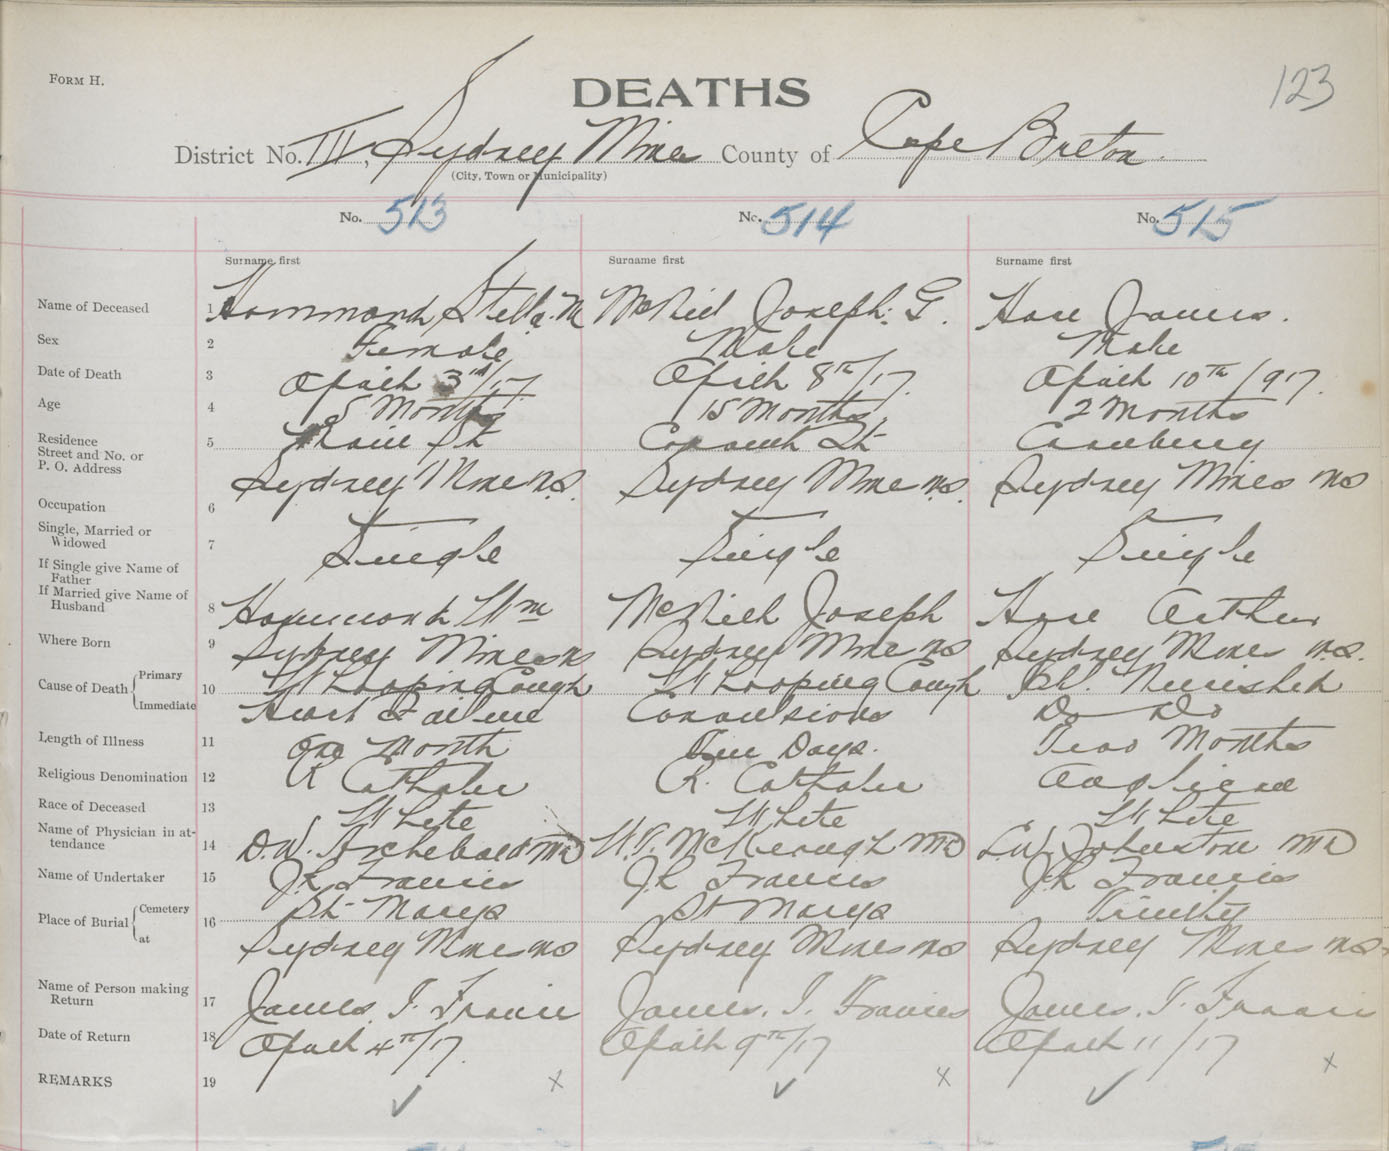 FORM H.
DEATHS
123
District No. III, Sydney Mines County of Cape Breton.
(City, Town or Municipality)
No. 513 No. 514 No. 515
Surname first Surname first Surname first
Name of Deceased 1 Hammond Stella. M McNeil Joseph. G. Hare James.
Sex 2 Female Male Male
Date of Death 3 April 3rd/17 April 8th/17 April 10th/917.
Age 4 5 Months 15 Months 2 Months
Residence Street and No. or P. O. Address 5 St St Cranberry
Sydney Mines N.S. Sydney Mines N.S. Sydney Mines NS
Occupation 6
Single, Married or Widowed 7 Single Single Single
If Single give Name of Father
If Married give Name of Husband 8 Hammond Wm McNeil Joseph Hare Arthur
Where Born 9 Sydney Mines NS Sydney Mines NS Sydney Mines N.S.
Cause of Death Primary 10 Whooping Cough Whooping Cough
Immediate Heart Failure Convulsions Do Do
Length of Illness 11 One Month Days. Two Months
Religious Denomination 12 R Catholic R. Catholic Anglican
Race of Deceased 13 White White White
Name of Physician in attendance 14 D.W. Archibald MD McKeough MD L.W. Johnstone MD
Name of Undertaker 15 J.R Francis J.R Francis J.R Francis
Place of Burial Cemetery 16 St Marys St Marys Trinity
at Sydney Mines NS Sydney Mines NS Sydney Mines NS
Name of Person making Return 17 James. I. Francis James. I. Francis James. I. Francis
Date of Return 18 April 4th/17. April 9th/17 April 11/17
REMARKS 19 ✓ x ✓ x ✓ x